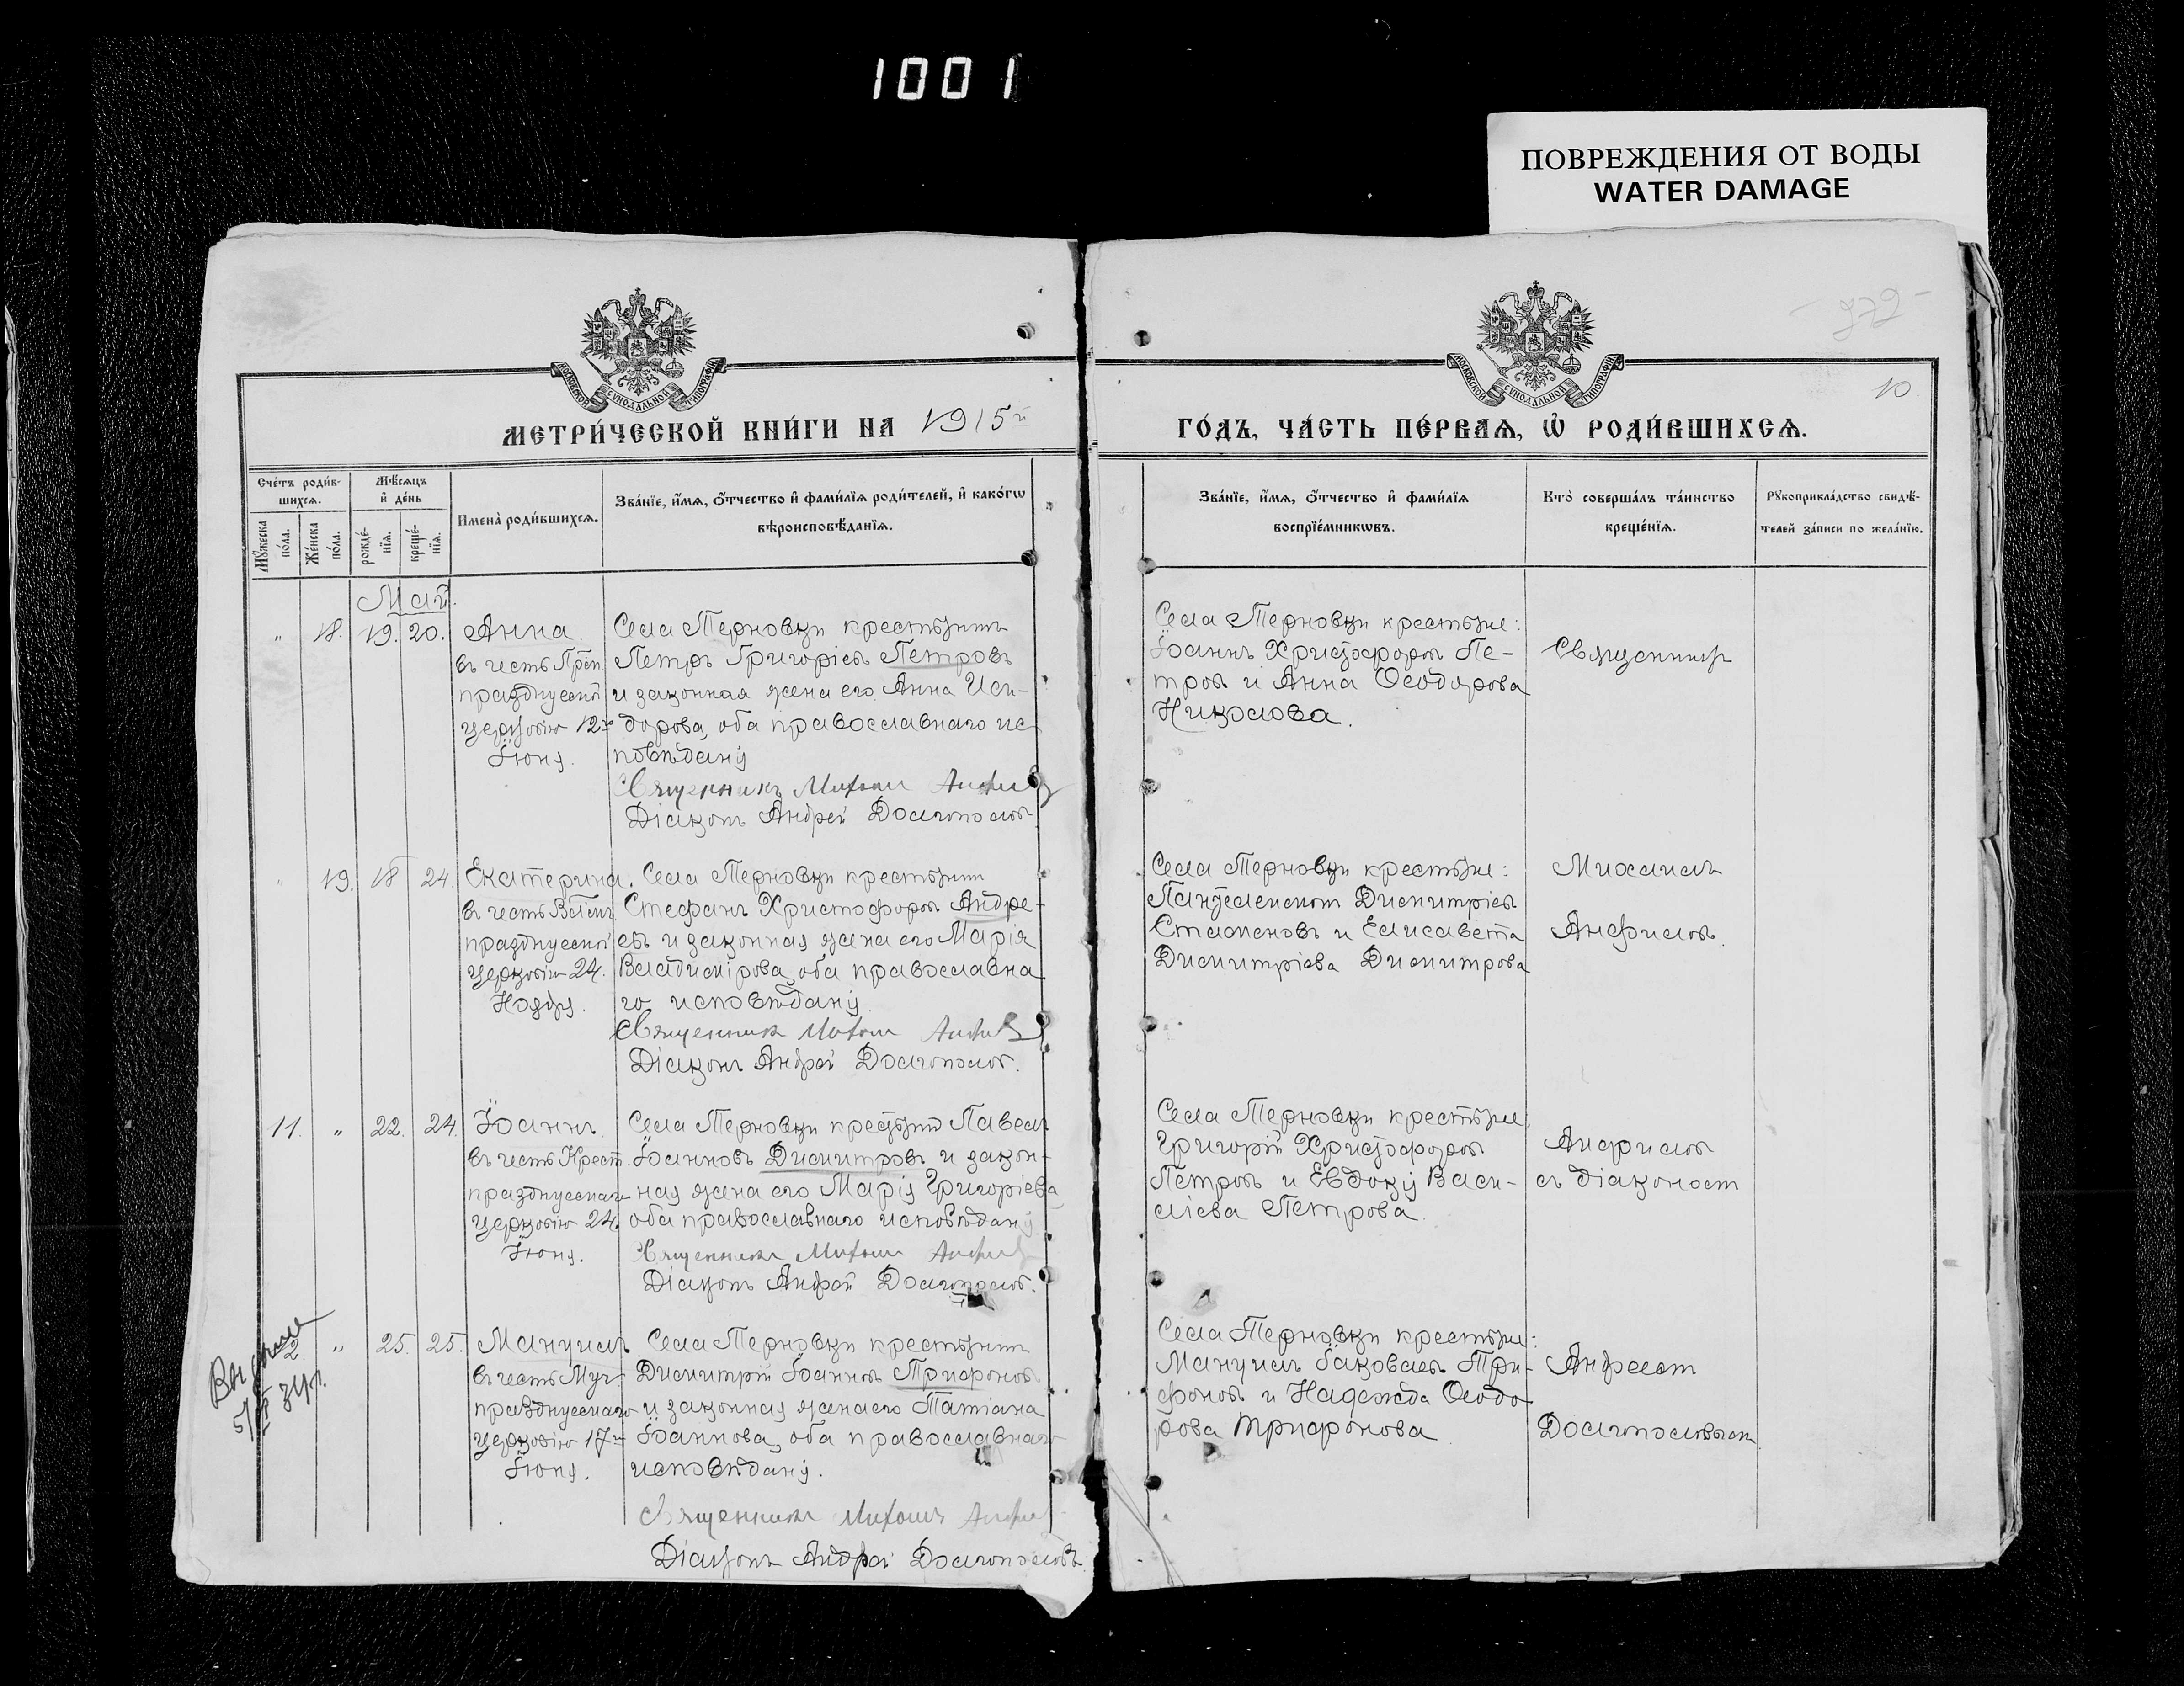 1001
ПОВРЕЖДЕНИЯ ОТ ВОДЫ
WATER DAMAGE
МОСКОВСКОЙ СУНОДАЛЬНОЙ ТИПОГРАФІИ
МОСКОВСКОЙ СУНОДАЛЬНОЙ ТИПОГРАФІИ
10.
МЕТРИ́ЧЕСКОЙ КНИ́ГИ НА 1915й
ГО́ДЪ, ЧА́СТЬ ПЕ́РВАѦ, Ѡ҆ РОДИ́ВШИХСѦ.
Сче́тъ роди́в-
шихсѧ.
Мѣ́сѧцъ
и҆ де́нь
Мꙋ́жеска
по́ла.
Же́нска
по́ла.
рожде́-
нїѧ.
креще́-
нїѧ.
Имена̀ роди́вшихсѧ.
Зва́нїе, и҆́мѧ, ѻ҆́тчество и҆ фами́лїѧ роди́телей, и҆ како́гѡ
вѣроисповѣ́данїѧ.
Зва́нїе, и҆́мѧ, ѻ҆́тчество и҆ фами́лїѧ
воспрїе́мникѡвъ.
Кто̀ соверша́лъ та́инство
креще́нїѧ.
Рꙋкоприкла́дство свидѣ́-
телей за́писи по жела́нїю.
Май.
" 18. 19. 20.
Анна.
въ честь Преп.
празднуемой
церковію 12го
Іюня.
Села Терновки крестьянинъ
Петръ Григоріевъ Петровъ
и законная жена его Анна Иси-
дорова, оба православнаго ис-
повѣданія
Священникъ Михаилъ Анфиловъ
Діаконъ Андрей Долгополовъ.
Села Терновки крестьяне:
Іоаннъ Христофоровъ Пе-
тровъ и Анна Ѳеодорова
Николова.
Священникъ
" 19. 18 24.
Екатерина.
въ честь Вел.муч.
празднуемой
церковію 24.
Ноября.
Села Терновки крестьянинъ
Стефанъ Христофоровъ Андре-
евъ и законная жена его Марія
Владимірова, оба православна-
го исповѣданія.
Священникъ Михаилъ Анфиловъ
Діаконъ Андрей Долгополовъ.
Села Терновки крестьяне:
Пантелеимонъ Димитріевъ
Стамоновъ и Елисавета
Димитріева Димитрова
Михаилъ
Анфиловъ.
11. " 22. 24.
Іоаннъ.
въ честь Крест.
празднуемаго
церковію 24.
Іюня.
Села Терновки крестьянинъ Павелъ
Іоанновъ Димитровъ и закон-
ная жена его Марія Григоріева
оба православнаго исповѣданія
Священникъ Михаилъ Анфиловъ
Діаконъ Андрей Долгополовъ.
Села Терновки крестьяне:
Григорій Христофоровъ
Петровъ и Евдокія Васи-
ліева Петрова.
Анфиловъ
съ діакономъ
2. " 25. 25.
Мануилъ
въ честь Муч.
празднуемаго
церковію 17го
Іюня.
Села Терновки крестьянинъ
Димитрій Іоанновъ Трифоновъ
и законная жена его Татіана
Іоаннова, оба православнаго
исповѣданія.
Священникъ Михаилъ Анфиловъ
Діаконъ Андрей Долгополовъ.
Села Терновки крестьяне:
Мануилъ Іаковлевъ Три-
фоновъ и Надежда Ѳеодо-
рова Трифонова
Андреемъ
Долгополовымъ